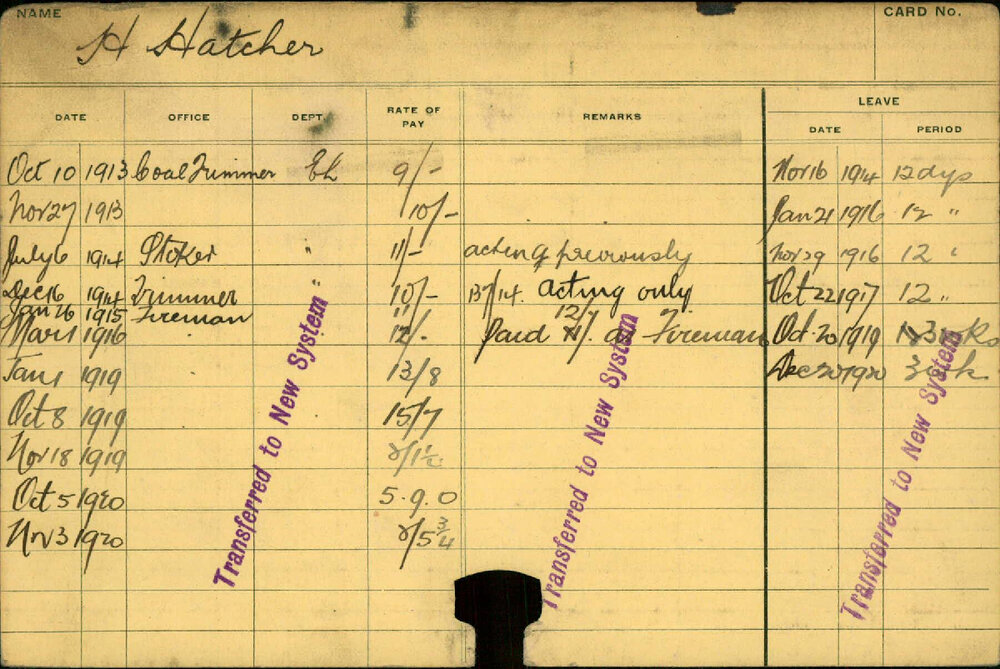 NAME
CARD No.
H Hatcher
DATE OFFICE DEPT. RATE OF PAY REMARKS LEAVE
DATE PERIOD
Oct 10 1913 Coal Trimmer El 9/- Nov 16 1914 12 dys
Nov 27 1913 10/- Jan 21 1916 12 "
July 6 1914 Stoker " 11/- acting previously Nov 29 1916 12 "
Dec 16 1914 Trimmer " 10/- acting only Oct 22 1917 12 "
Jan 26 1915 Fireman 11/- 12/-
Mar 1 1916 " 12/- Paid as Fireman Oct 20 1919 3 wks
Jan 1 1919 13/8 Dec 20 1920 3 wk
Oct 8 1919 15/7
Nov 18 1919 2/1½
Oct 5 1920 5.9.0
Nov 3 1920 2/5¾
Transferred to New System
Transferred to New System
Transferred to New System